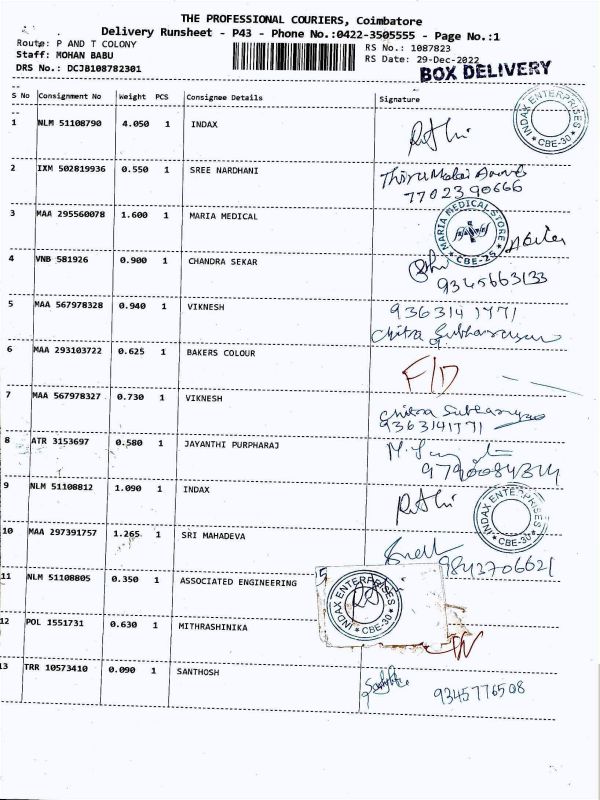 THE PROFESSIONAL COURIERS, Coimbatore
Delivery Runsheet - P43 - Phone No.:0422-3505555 - Page No.:1
Route: P AND T COLONY RS No.: 1087823
Staff: MOHAN BABU RS Date: 29-Dec-2022
DRS No.: DCJB108782301 BOX DELIVERY
S No Consignment No Weight PCS Consignee Details Signature
1 NLM 51108790 4.050 1 INDAX INDAX ENTERPRISES * CBE-30 *
2 IXM 502819936 0.550 1 SREE NARDHANI
7702390666
3 MAA 295560078 1.600 1 MARIA MEDICAL MARIA MEDICAL STORE * CBE-25 *
4 VNB 581926 0.900 1 CHANDRA SEKAR
9345663133
5 MAA 567978328 0.940 1 VIKNESH 9363141771
6 MAA 293103722 0.625 1 BAKERS COLOUR F/D
7 MAA 567978327 0.730 1 VIKNESH
9363141771
8 ATR 3153697 0.580 1 JAYANTHI PURPHARAJ
9 NLM 51108812 1.090 1 INDAX INDAX ENTERPRISES * CBE-30 *
10 MAA 297391757 1.265 1 SRI MAHADEVA
9842706621
11 NLM 51108805 0.350 1 ASSOCIATED ENGINEERING INDAX ENTERPRISES * CBE-30 *
12 POL 1551731 0.630 1 MITHRASHINIKA
13 TRR 10573410 0.090 1 SANTHOSH 9345776508